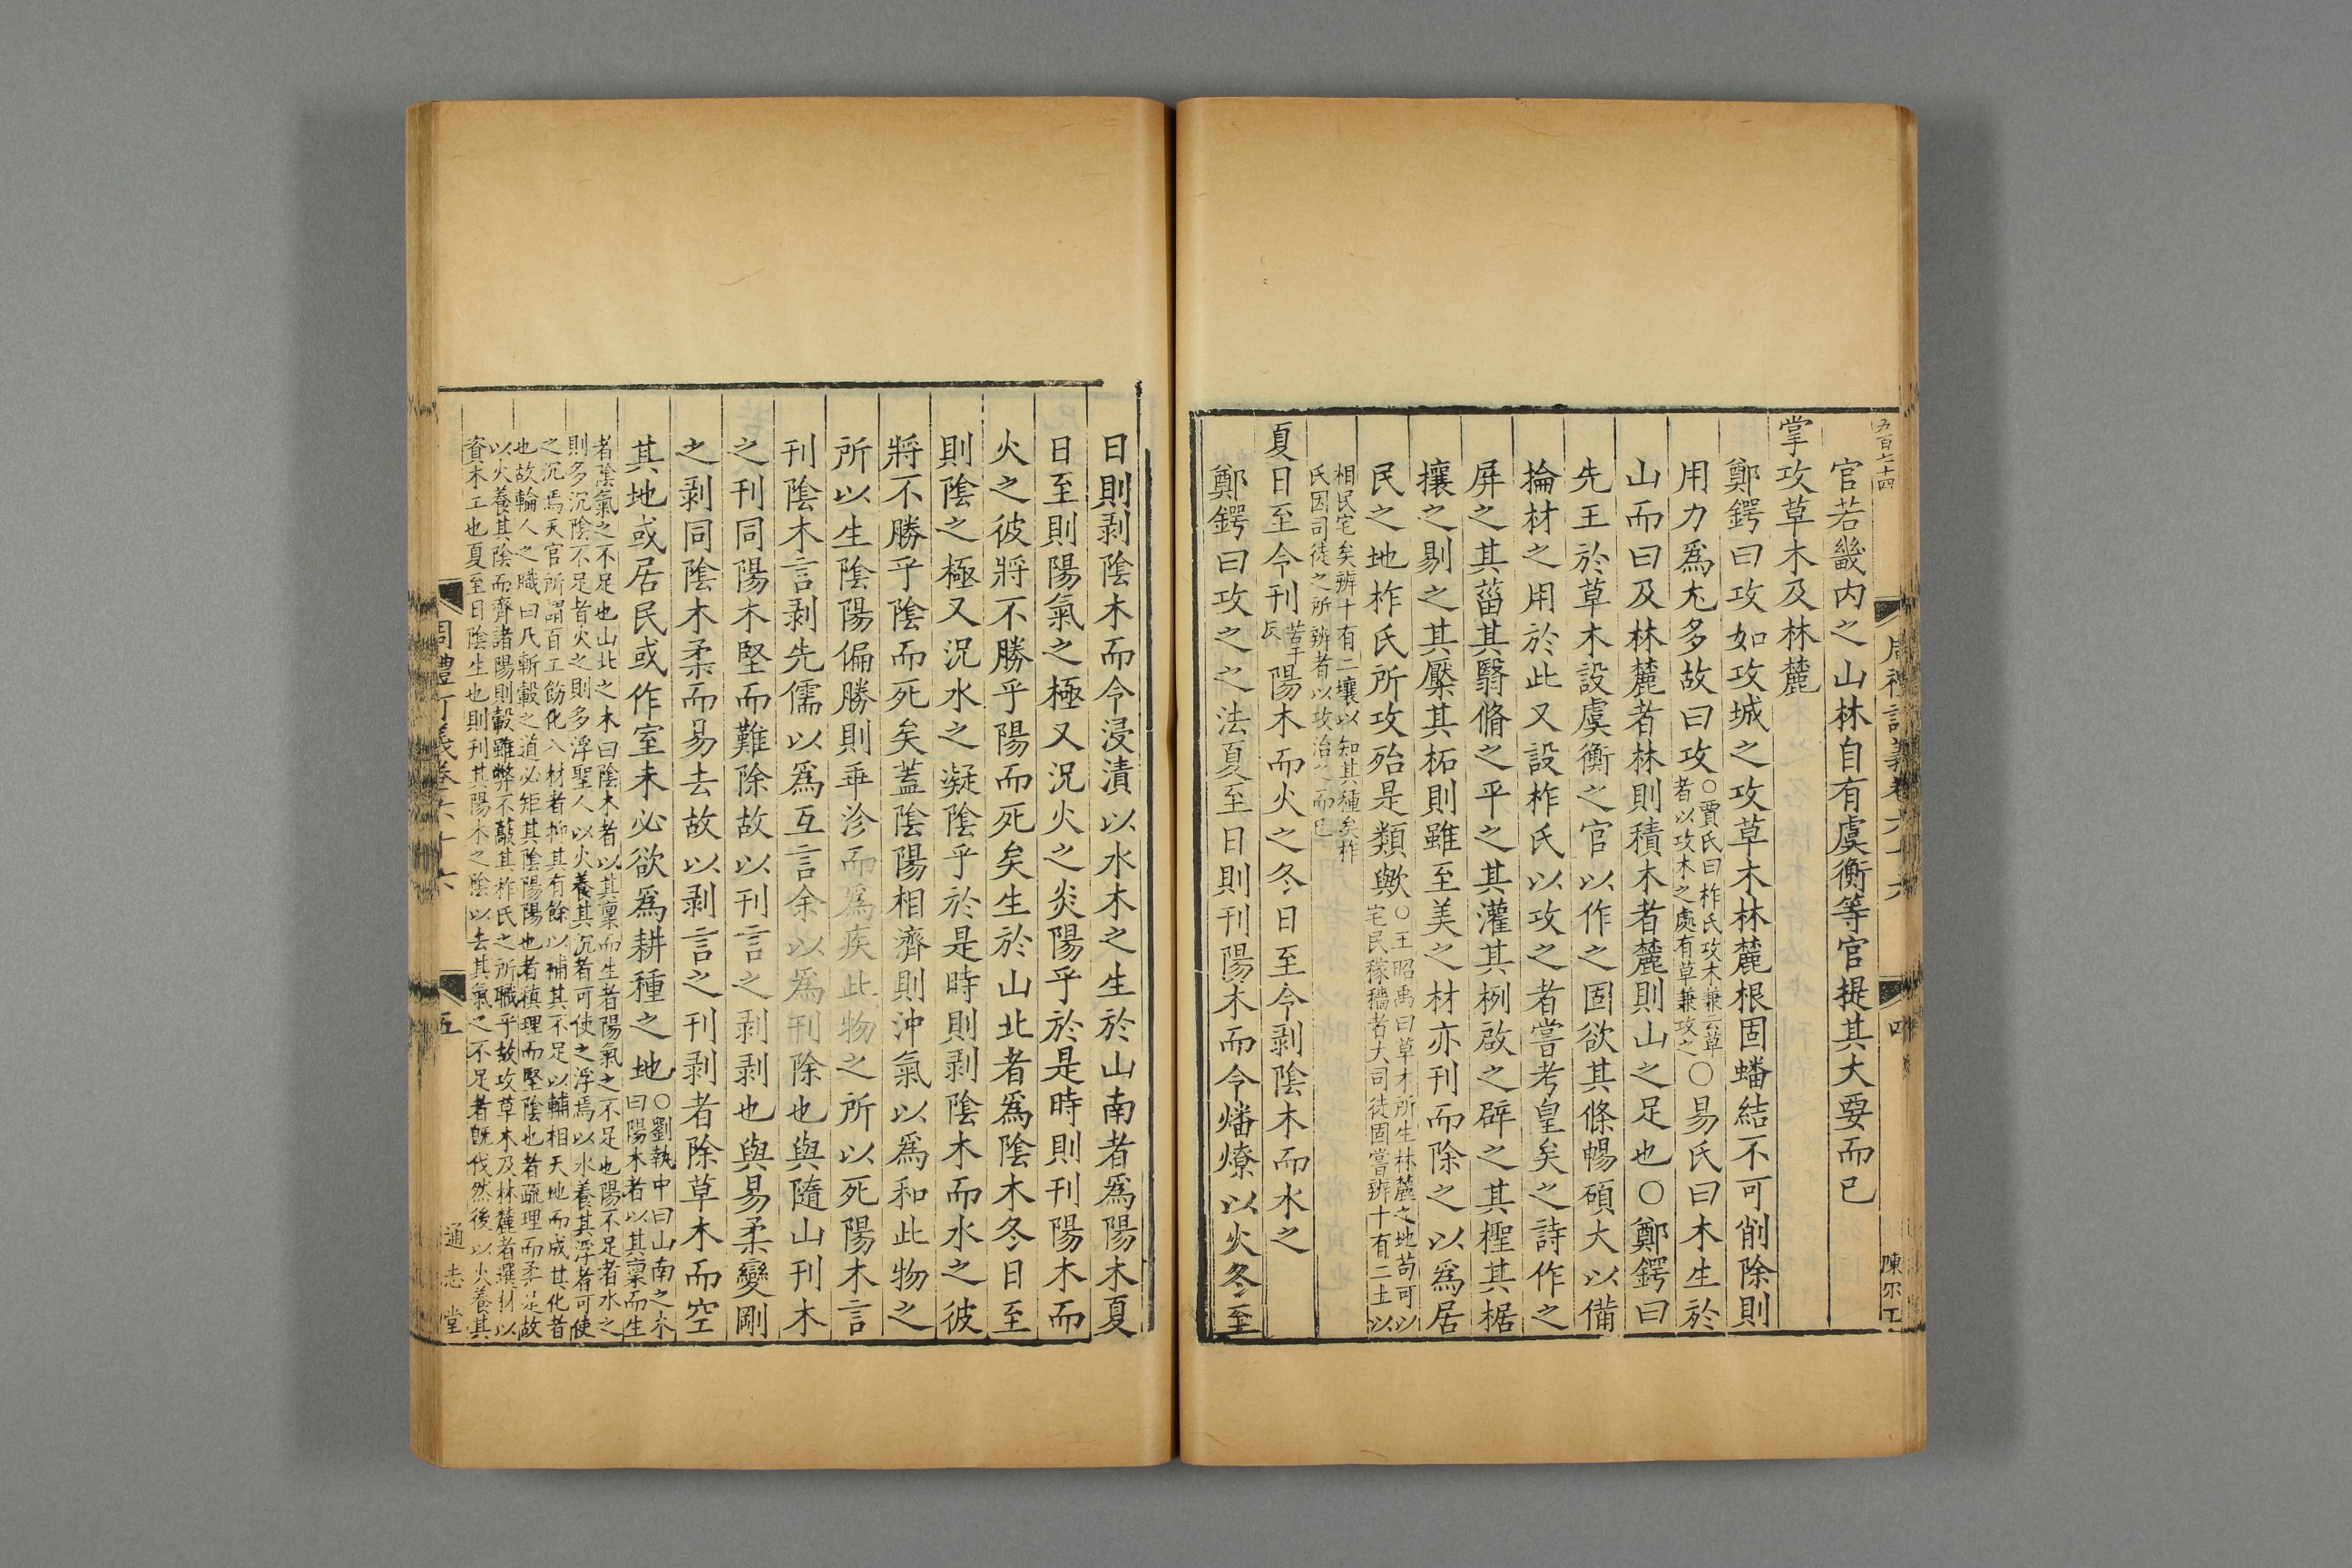 五百七十四
官若畿內之山林自有虞衡等官提其大要而已
掌攻草木及林麓
鄭鍔曰攻如攻城之攻草木林麓根固蟠結不可削除則
用力爲尢多故曰攻○賈氏曰柞氏攻木兼云草
者以攻木之處有草兼攻之○易氏曰木生於
山而曰及林麓者林則積木者麓則山之足也○鄭鍔曰
先王於草木設虞衡之官以作之固欲其條暢碩大以備
掄材之用於此又設柞氏以攻之者嘗考皇矣之詩作之
屏之其菑其翳脩之平之其灌其栵啟之辟之其檉其椐
攘之剔之其檿其柘則雖至美之材亦刊而除之以爲居
民之地柞氏所攻殆是類歟○王昭禹曰草木所生林麓之地苟可以
宅民稼穡者大司徒固嘗辨十有二土以
相民宅矣辨十有二壤以知其種矣柞
氏因司徒之所辨者以攻治之而已
夏日至令刊苦干反陽木而火之冬日至令剥陰木而水之
鄭鍔曰攻之之法夏至日則刊陽木而令燔燎以火冬至
周禮訂義卷六十六
四
陳尔工
日則剥陰木而令浸漬以水木之生於山南者爲陽木夏
日至則陽氣之極又況火之炎陽乎於是時則刊陽木而
火之彼將不勝乎陽而死矣生於山北者爲陰木冬日至
則陰之極又況水之凝陰乎於是時則剥陰木而水之彼
將不勝乎陰而死矣蓋陰陽相濟則沖氣以爲和此物之
所以生陰陽偏勝則乖沴而爲疾此物之所以死陽木言
刊陰木言剥先儒以爲互言余以爲刊除也與隨山刊木
之刊同陽木堅而難除故以刊言之剥剥也與易柔變剛
之剥同陰木柔而易去故以剥言之刊剥者除草木而空
其地或居民或作室未必欲爲耕種之地○劉執中曰山南之木
曰陽木者以其稟而生
者陰氣之不足也山北之木曰陰木者以其稟而生者陽氣之不足也陽不足者水之
則多沉陰不足者火之則多浮聖人以火養其沉者可使之浮焉以水養其浮者可使
之沉焉天官所謂百工飭化八材者抑其有餘以補其不足以輔相天地而成其化者
也故輪人之職曰凡斬轂之道必矩其陰陽陽也者稹理而堅陰也者疏理而柔是故
以火養其陰而齊諸陽則轂雖弊不藃其柞氏之所職乎故攻草木及林麓者選材以
資木工也夏至日陰生也則刊其陽木之陰以去其氣之不足者既伐然後以火養其
周禮訂義卷六十六
五
通志堂